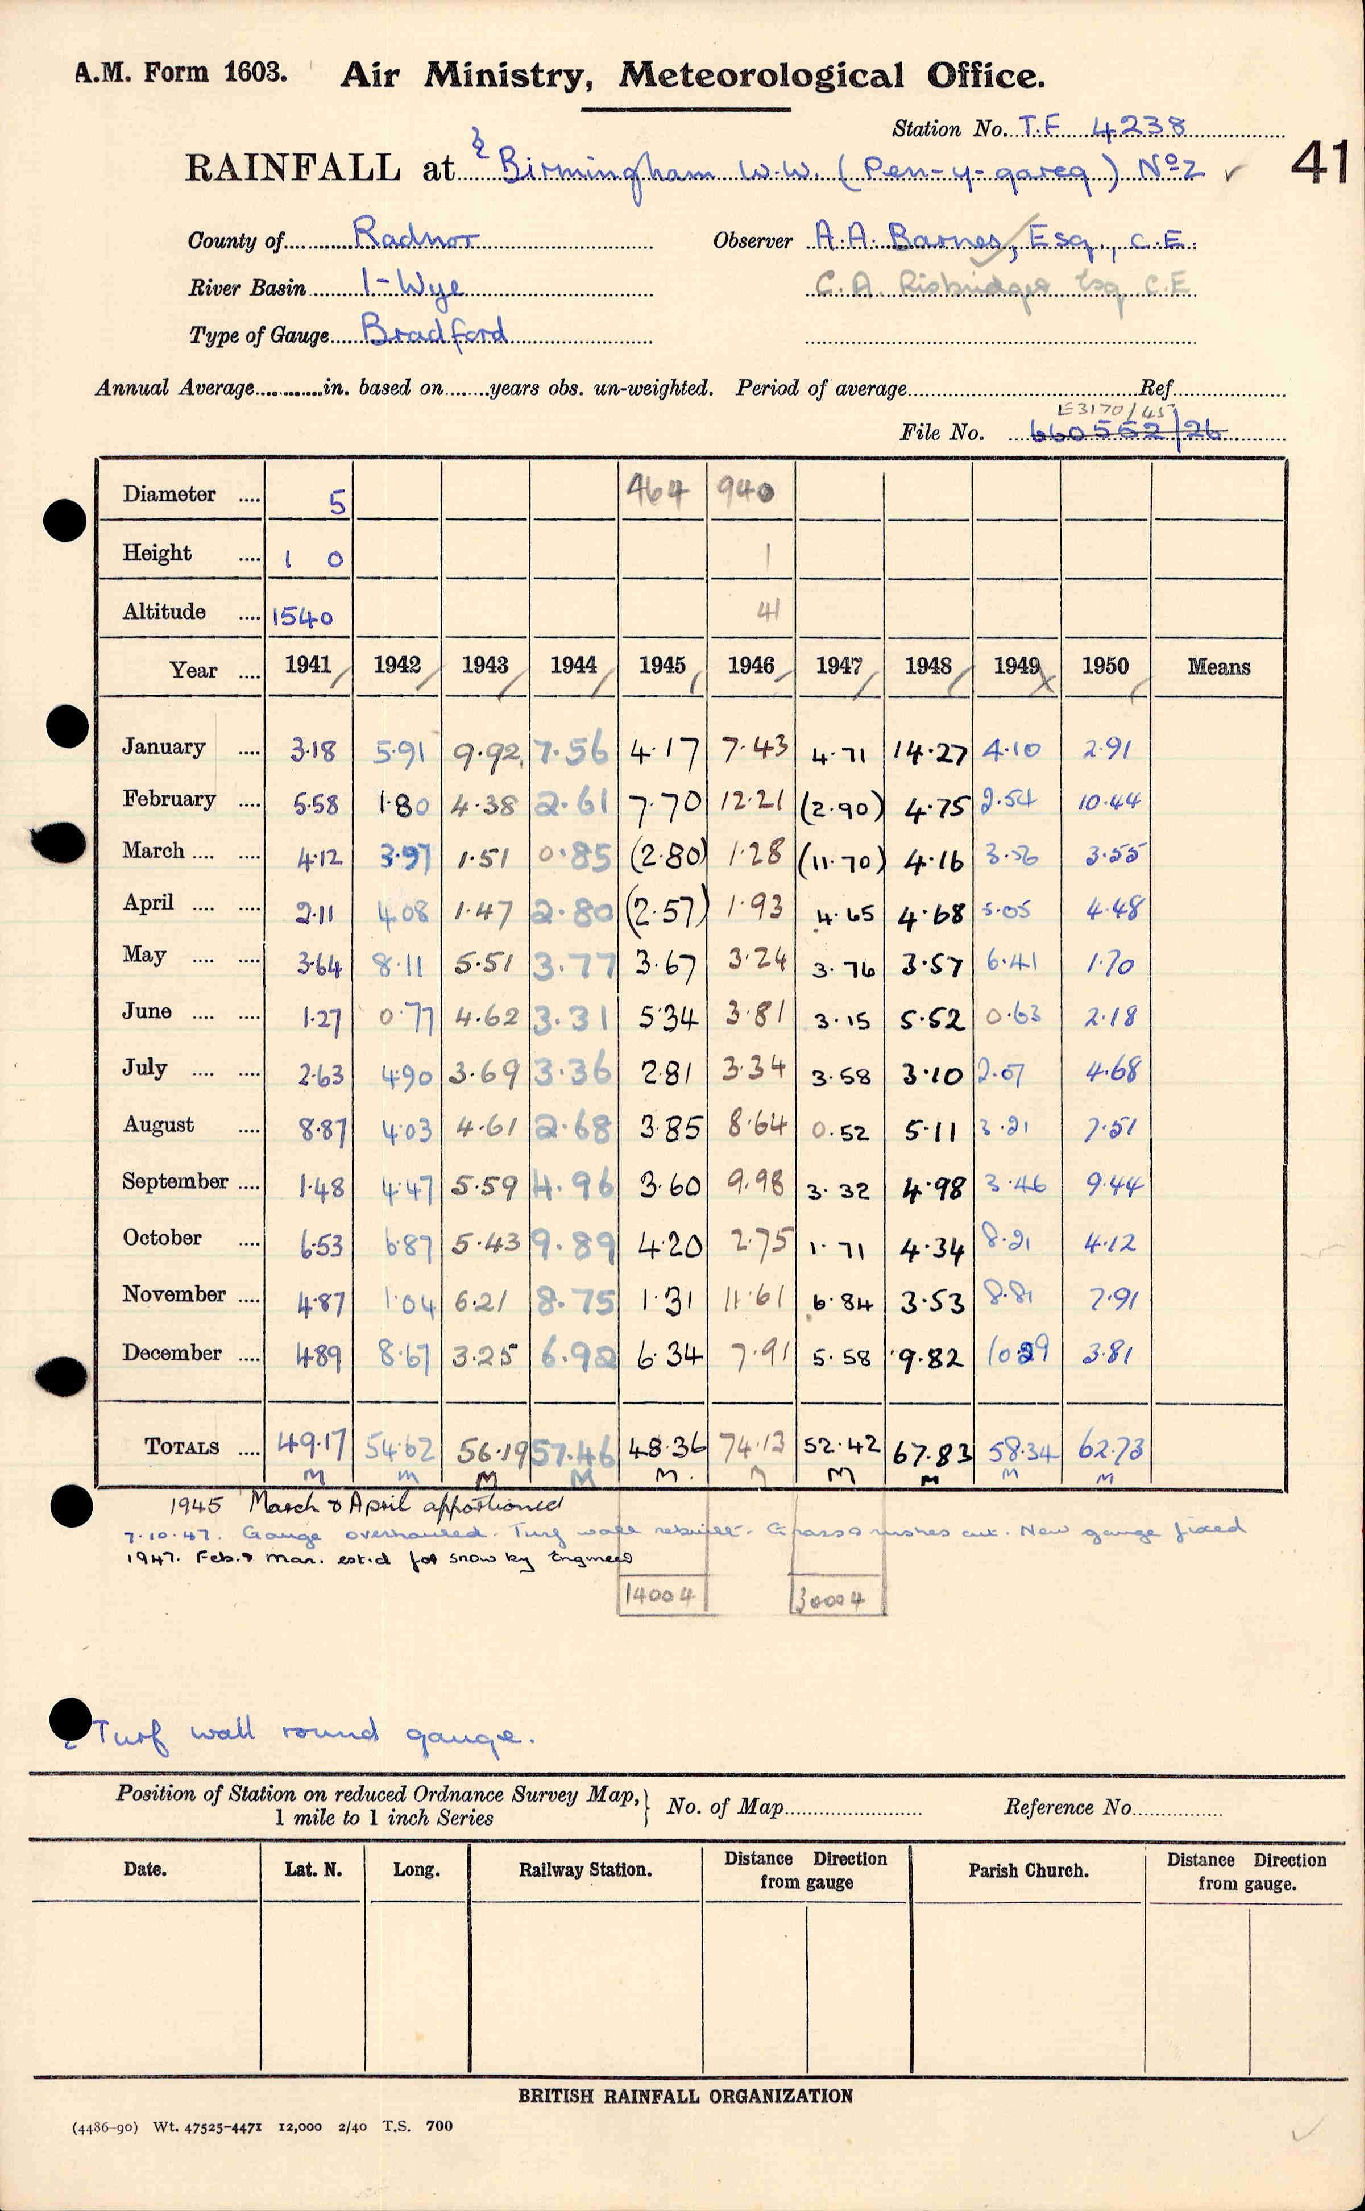 A.M. Form 1603. Air Ministry, Meteorological Office.
Station No. T.F 4238
RAINFALL at Birmingham W.W. (Pen-y-gareg) Nº2 ✓ 41
County of Radnor Observer A.A. Barnes, Esq., C.E.
River Basin 1-Wye C.A. Risbridger Esq C.E
Type of Gauge Bradford
Annual Average in. based on years obs. un-weighted. Period of average Ref
E3170/45
File No. 660562/26
Diameter .... 5 464 940
Height .... 1 0 1
Altitude .... 1540 41
Year .... 1941 1942 1943 1944 1945 1946 1947 1948 1949 1950 Means
January .... 3.18 5.91 9.92 7.56 4.17 7.43 4.71 14.27 4.10 2.91
February .... 5.58 1.80 4.38 2.61 7.70 12.21 (2.90) 4.75 2.54 10.44
March .... .... 4.12 3.97 1.51 0.85 (2.80) 1.28 (11.70) 4.16 3.56 3.55
April .... .... 2.11 4.08 1.47 2.80 (2.57) 1.93 4.65 4.68 5.05 4.48
May .... .... 3.64 8.11 5.51 3.77 3.67 3.24 3.76 3.57 6.41 1.70
June .... .... 1.27 0.77 4.62 3.31 5.34 3.81 3.15 5.52 0.63 2.18
July .... .... 2.63 4.90 3.69 3.36 2.81 3.34 3.58 3.10 2.07 4.68
August .... 8.87 4.03 4.61 2.68 3.85 8.64 0.52 5.11 3.21 7.51
September .... 1.48 4.47 5.59 4.96 3.60 9.98 3.32 4.98 3.46 9.44
October .... 6.53 6.87 5.43 9.89 4.20 2.75 1.71 4.34 8.21 4.12
November .... 4.87 1.04 6.21 8.75 1.31 11.61 6.84 3.53 8.81 7.91
December .... 4.89 8.67 3.25 6.92 6.34 7.91 5.58 9.82 10.29 3.81
TOTALS .... 49.17 54.62 56.19 57.46 48.36 74.13 52.42 67.83 58.34 62.73
M M M M M. M M M M M
1945 March & April apportioned
7.10.47. Gauge overhauled. Turf wall rebuilt. Grass & rushes cut. New gauge fixed
1947. Feb. & Mar. est.d for snow by Engineer
14004 30004
Turf wall round gauge.
Position of Station on reduced Ordnance Survey Map, 1 mile to 1 inch Series No. of Map Reference No.
Date. Lat. N. Long. Railway Station. Distance Direction from gauge Parish Church. Distance Direction from gauge.
BRITISH RAINFALL ORGANIZATION
(4486-90) Wt. 47525-4471 12,000 2/40 T.S. 700